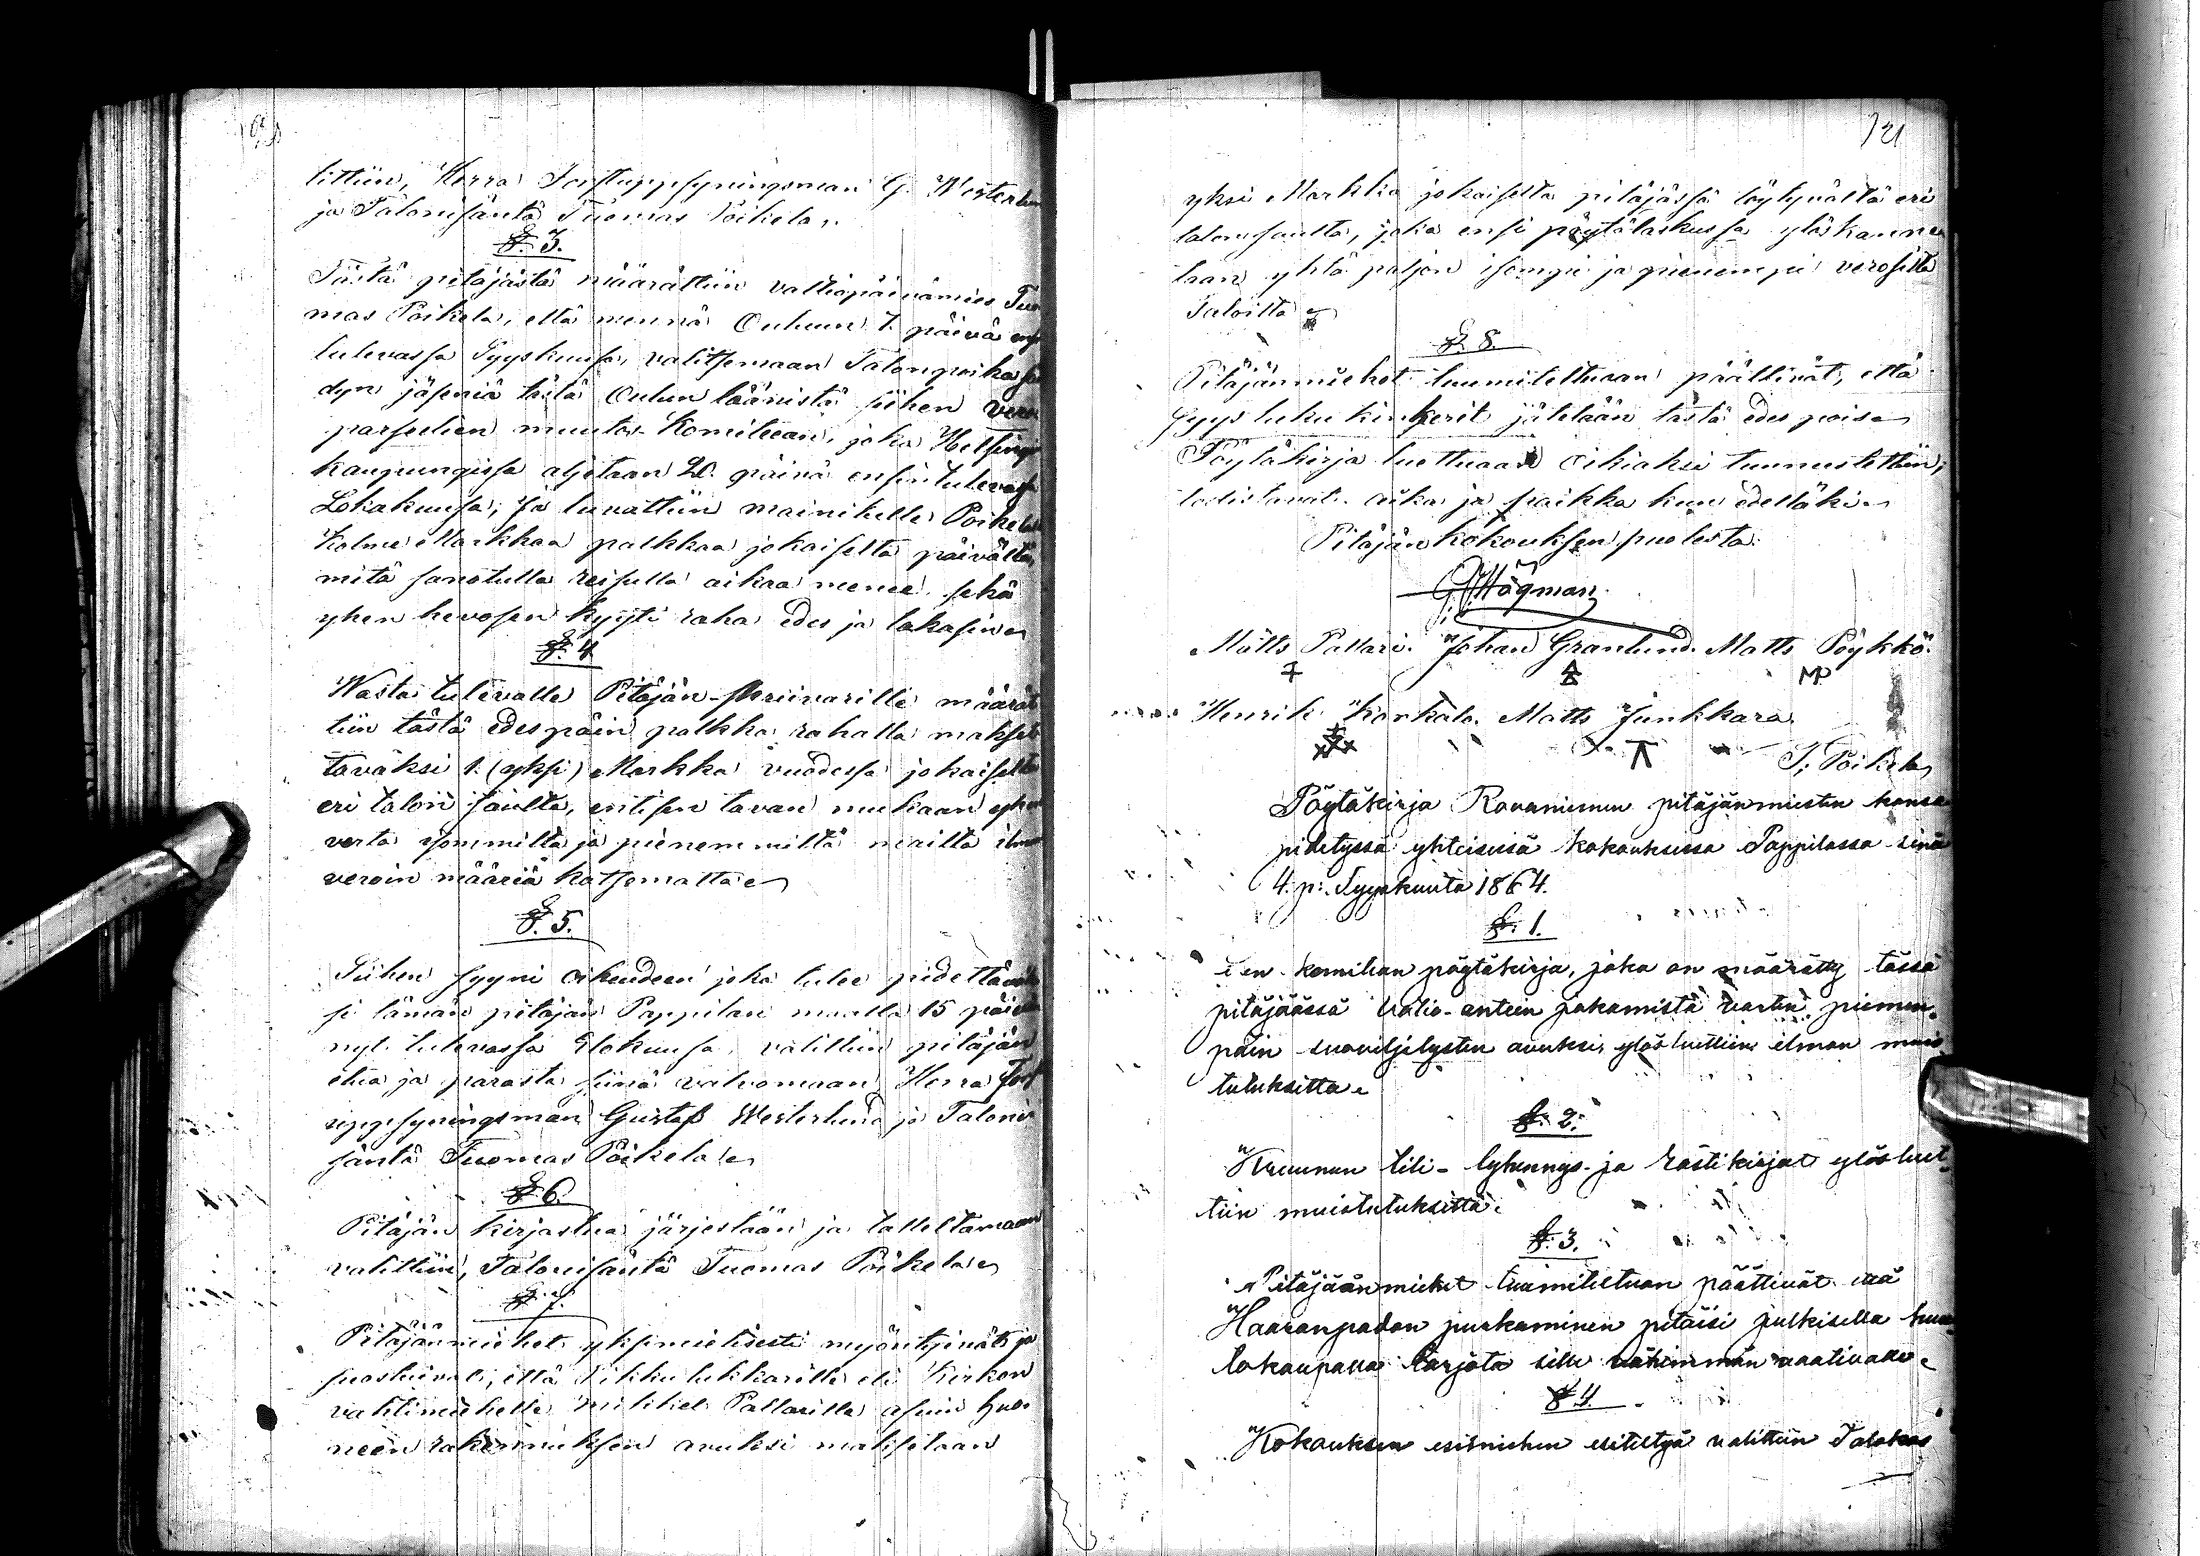 littiin, Herra Forstuppsyningsman G. Westerlun
ja Talonisäntä Tuomas Poikela.
§. 3.
Tästä pitäjästä määrättiin valtiopäivämies Tuo
mas Poikela, että mennä Ouluun 1. päivä ensi
tulevassa Syyskuusa, valitsemaan Talonpoikas sä
dyn jäseniä tästä Oulun läänistä siihen vero
parselien muutos-Komiteean, joka Helsingi
kaupungissa aljetaan 20. päivä ensintulevassa
Lokakuusa; Ja luvattiin mainitulle Poikelalle
Kolme Markkaa palkkaa jokaiselta päivältä,
mitä sanotulla reisulla aikaa menee, sekä
yhen hevosen kyyti raha edes ja takasin
§. 4
Wasta tulevalle Pitäjän-skriivarille määrät
tiin tästä edespäin palkka rahalla makset
taväksi 1. (yksi) Markka vuodessa jokaiselta
eri talon isäntä, entisen tavan mukaan yhen
verta isommilta ja pienemmiltä mailta ilman
veroin määriä katsomatta
§. 5.
Siihen syyni oikeudeen joka tulee pidettäväk
si tämän pitäjän Pappilan maalla 15 päivä
nyt tulevassa Elokuusa, valittiin pitäjän
etua ja parasta siinä valvomaan Herra Forst
uppsyningsman Gustaf Westerlund ja Taloni
säntä Tuomas Poikela
§. 6.
Pitäjän kirjastoa järjestään ja talleltamaan
valittiin, Talonisäntä Tuomas Poikela
§. 7.
Pitäjänmiehet yksimielisesti myöntyivät ja
suostuivat, että Nikku lukkarille eli Kirkon
vahtimiehelle Mikkel Pallarille asuin huo
neen rakennuksen avuksi maksetaan
121
yksi Markka jokaiselta pitäjässä löytyvältä eri
talonisäntä, joka ensi pöytälaskussa ylöskanne
taan yhtä paljon isompi ja pienempi verosilta
Taloilta
§. 8.
Pitäjänmiehet tuumiteltuaan päättivät, että
syys luku kinkerit jätetään tästä edes pois
Pöytäkirja luettuaan oikiaksi tunnustettiin;
todistavat. aika ja paikka kun edelläki
Pitäjän kokouksen puolesta:
G. Högman.
Matts Pallari. Johan Granlund. Matts Pöykkö.
MP
Henrik Karkalo. Matts Junkkara
T; Poikela
Pöytäkirja Rovaniemen pitäjänmiesten kansa
pidetyssä yhteisessä kokouksessa Pappilassa sinä
4. p: Syyskuuta 1864.
§. 1.
komitean pöytäkirja, joka on määrätty tässä
pitäjäässä valio-antein jakamista varten pienem
päin suoviljelysten avuksi, ylösluettiin ilman muis
tutuksitta.
§. 2.
Kruunun tili- lyhennys- ja rästikirjat ylösluet
tiin muistutuksitta.
§. 3.
Pitäjäänmiehet tuumiteltuan päättivät että
Haaranpadon purkaminen pitäisi julkisella huu
tokaupalla tarjota sille vähimmän vaativalle.
§. 4.
Kokouksen esimiehen esiteltyä valittiin Talokas